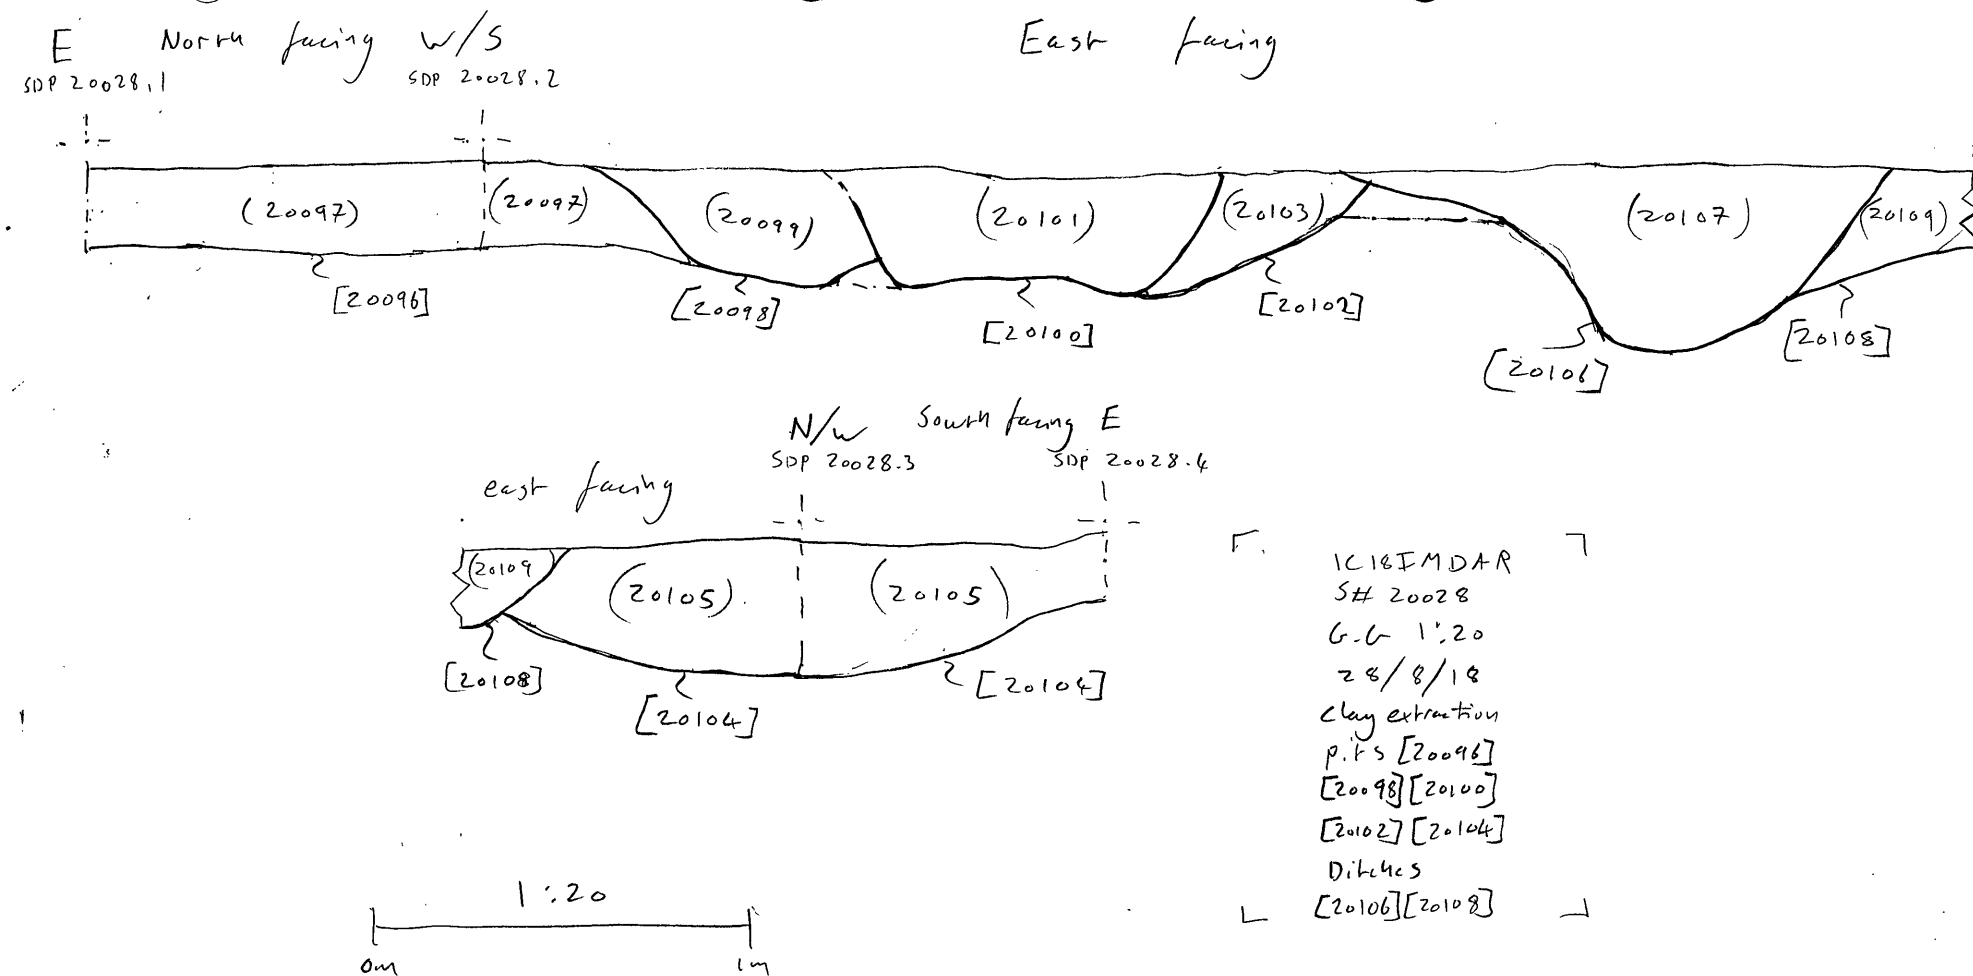 E North facing W/S East facing
SDP 20028.1 SDP 20028.2
(20097) (20097) (20099) (20101) (20103) (20107) (20109)
[20096] [20098] [20100] [20102] [20106] [20108]
N/W South facing E
SDP 20028.3 SDP 20028.4
east facing
(20109 (20105) (20105)
[20108] [20104] [20104]
IC18IMDAR
S# 20028
G.G 1:20
28/8/18
Clay extraction
pits [20096]
[20098][20100]
[20102][20104]
Ditches
[20106][20108]
1:20
0m 1m